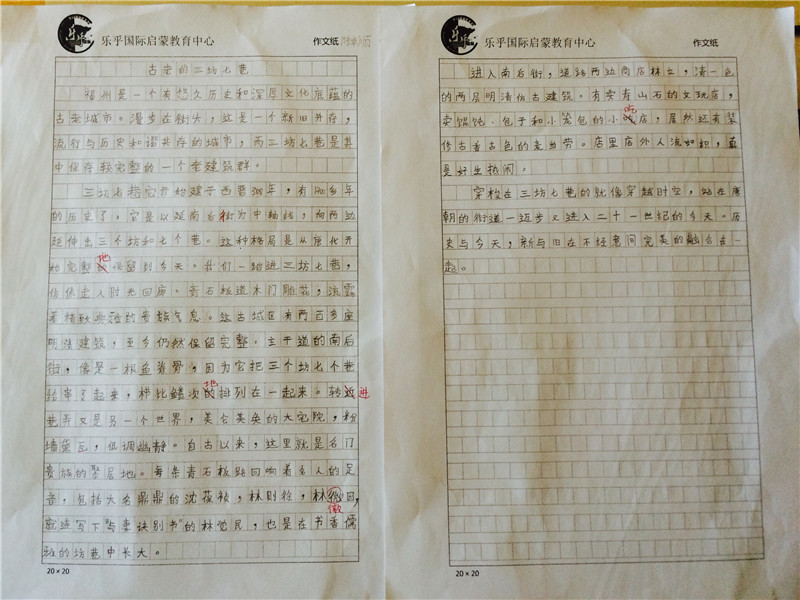 乐乎国际启蒙教育中心
作文纸
古老的三坊七巷
福州是一个有悠久历史和深厚文化底蕴的
古老城市。漫步在街头，这是一个新旧并存，
流行与历史和谐共存的城市，而三坊七巷是其
中保存较完整的一个老建筑群。
三坊七巷它开始建于西晋
年，有
多年
的历史了，它是以延南后街为中轴线，向两边
延伸出三个坊和七个巷。这种格局是从唐代开
始完整地保留到今天。我们一踏进三坊七巷，
仿佛走入时光回廊。青石板道木门雕花，流露
着精致典雅的贵族气息。这古城区有两百多座
明清建筑，至今仍然保留完整。主干道的南后
街，像是一根鱼脊骨，因为它把三个坊七个巷
给串了起来，栉比鳞次的地排列在一起来。转近进
巷弄又是另一个世界，美仑美奂的大宅院，粉
墙黛瓦，低调幽静。自古以来，这里就是名门
贵族的聚居地。每条青石板路回响着名人的足
音，包括大名鼎鼎的沈葆祯，林则徐，林
徽因，
就连写下"与妻诀别书"的林觉民，也是在书香儒
雅的坊巷中长大。
20×20
乐乎国际启蒙教育中心
作文纸
进入南后街，道路两边商店林立，清一色
的两层明清仿古建筑。有卖寿山石的文玩店，
卖馄饨、包子和小笼包的小吃店，居然还有装
修古香古色的麦当劳。店里店外人流如织，真
是好生热闹。
穿梭在三坊七巷的就像穿越时空，站在唐
朝的街道一迈步又进入二十一世纪的今天。历
史与今天，新与旧在不经意间完美的融合在一
起。
20×20